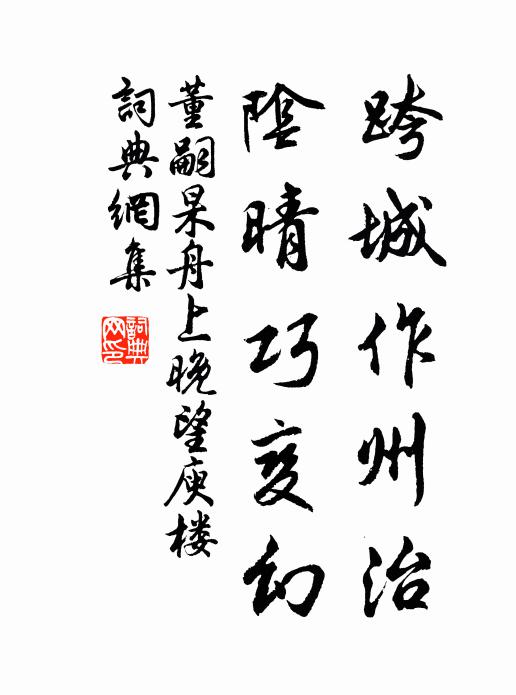 跨城作州治
陰晴巧变幻
董嗣杲舟上晚望庾楼
詞典網集
詞典
网印